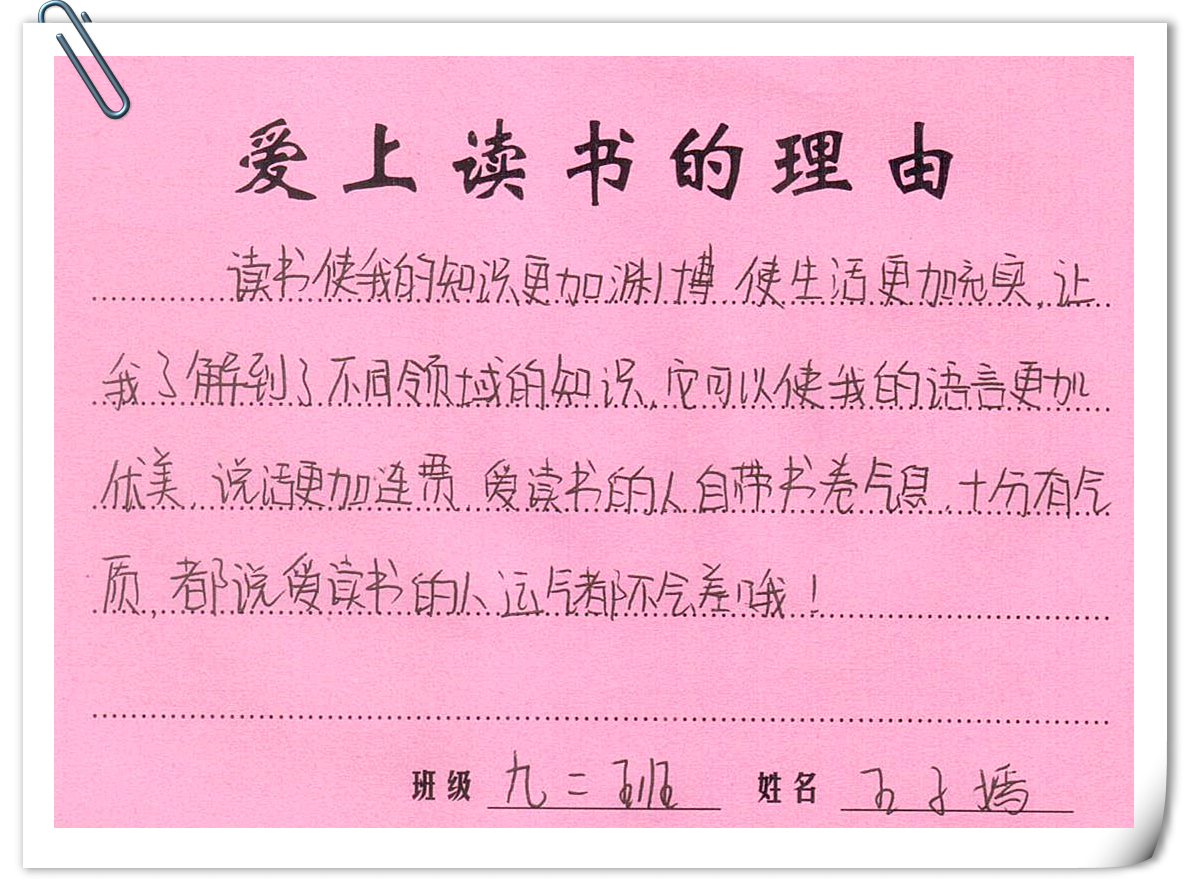 爱上读书的理由
读书使我的知识更加渊博 使生活更加充实,让
我了解到了不同领域的知识,它可以使我的语言更加
优美,说话更加连贯,爱读书的人自带书卷气息,十分有气
质,都说爱读书的人运气都不会差哦!
班级 九二班 姓名 王子嫣